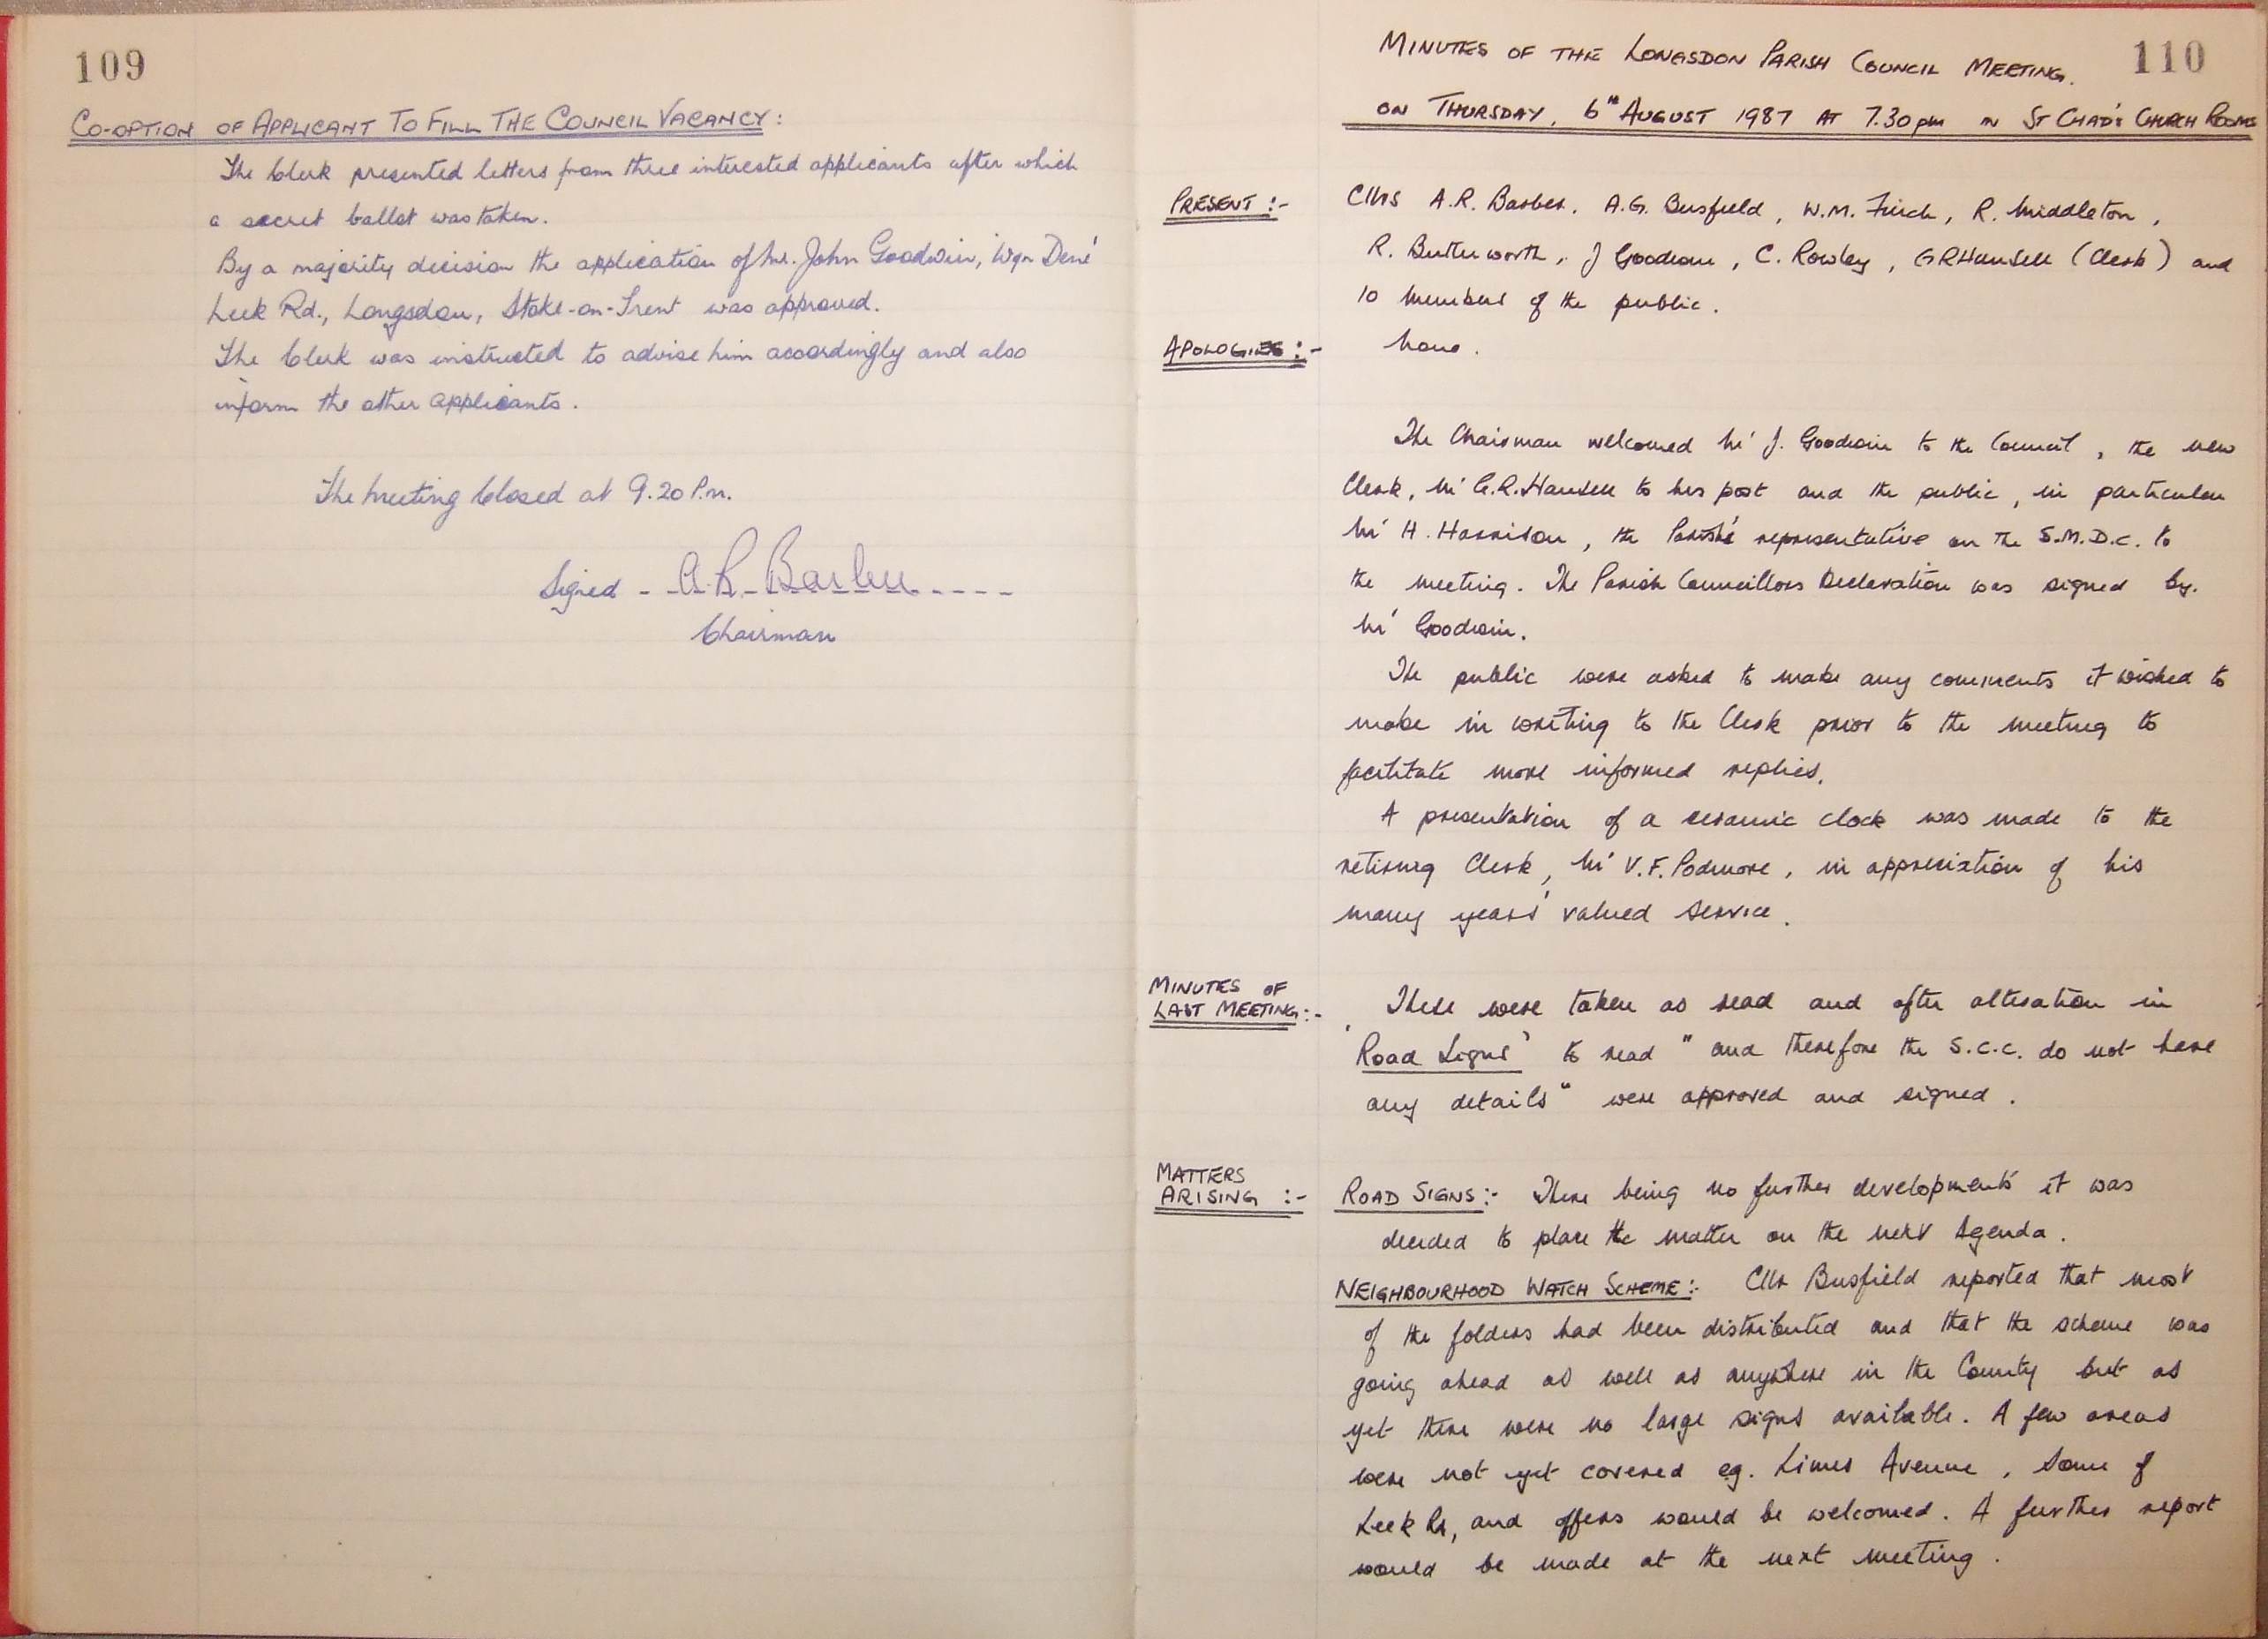 109
CO-OPTION OF APPLICANT TO FILL THE COUNCIL VACANCY:
The Clerk presented letters from three interested applicants after which
a secret ballot was taken.
By a majority decision the application of Mr. John Goodwin, Wyn Dene'
Leek Rd., Longsdon, Stoke-on-Trent was approved.
The Clerk was instructed to advise him accordingly and also
inform the other applicants.
The Meeting Closed at 9.20 P.m.
Signed - A. R. Barber
Chairman
110
MINUTES OF THE LONGSDON PARISH COUNCIL MEETING.
ON THURSDAY, 6TH AUGUST 1987 AT 7.30pm IN ST CHAD'S CHURCH ROOMS
PRESENT :- Cllrs A.R. Barber, A.G. Busfield, W.M. Finch, R. Middleton,
R. Butterworth, J Goodwin, C. Rowley, G R Hansell (Clerk) and
10 members of the public.
APOLOGIES :- None.
The Chairman welcomed Mr J. Goodwin to the Council, the new
Clerk, Mr G.R. Hansell to his post and the public, in particular
Mr H. Harrison, the Parish's representative on the S.M.D.C. to
the meeting. The Parish Councillors Declaration was signed by.
Mr Goodwin.
The public were asked to make any comments it wished to
make in writing to the Clerk prior to the meeting to
facilitate more informed replies.
A presentation of a ceramic clock was made to the
retiring Clerk, Mr V.F. Podmore, in appreciation of his
many years' valued service.
MINUTES OF
LAST MEETING:- These were taken as read and after alteration in
'Road Signs' to read "and therefore the S.C.C. do not have
any details" were approved and signed.
MATTERS
ARISING :- ROAD SIGNS:- There being no further developments it was
decided to place the matter on the next Agenda.
NEIGHBOURHOOD WATCH SCHEME:- Cllr Busfield reported that most
of the folders had been distributed and that the scheme was
going ahead as well as anywhere in the County but as
yet there were no large signs available. A few areas
were not yet covered eg. Limes Avenue, some of
Leek Rd, and offers would be welcomed. A further report
would be made at the next meeting.